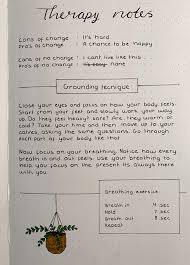 Therapy notes
Cons of change : It's hard
Pro's of change : A chance to be happy
Cons of no change : I cant live like this...
Pro's of change : none
Grounding tecnique
Close your eyes and focus on how your body feels.
Start from your feet and slowly work your way
up. Do they feel heavy? Sore? Are they warm or
cold? Take your time and then move up to your
calves, asking the same questions. Go through
each part of your body like that
Now focus on your breathing. Notice how every
breath in and out feels. Use your breathing to
help you focus on the present its always there
with you.
Breathing exercise
Breath in 4 sec
Hold 7 sec
Breath out 8 sec
Repeat